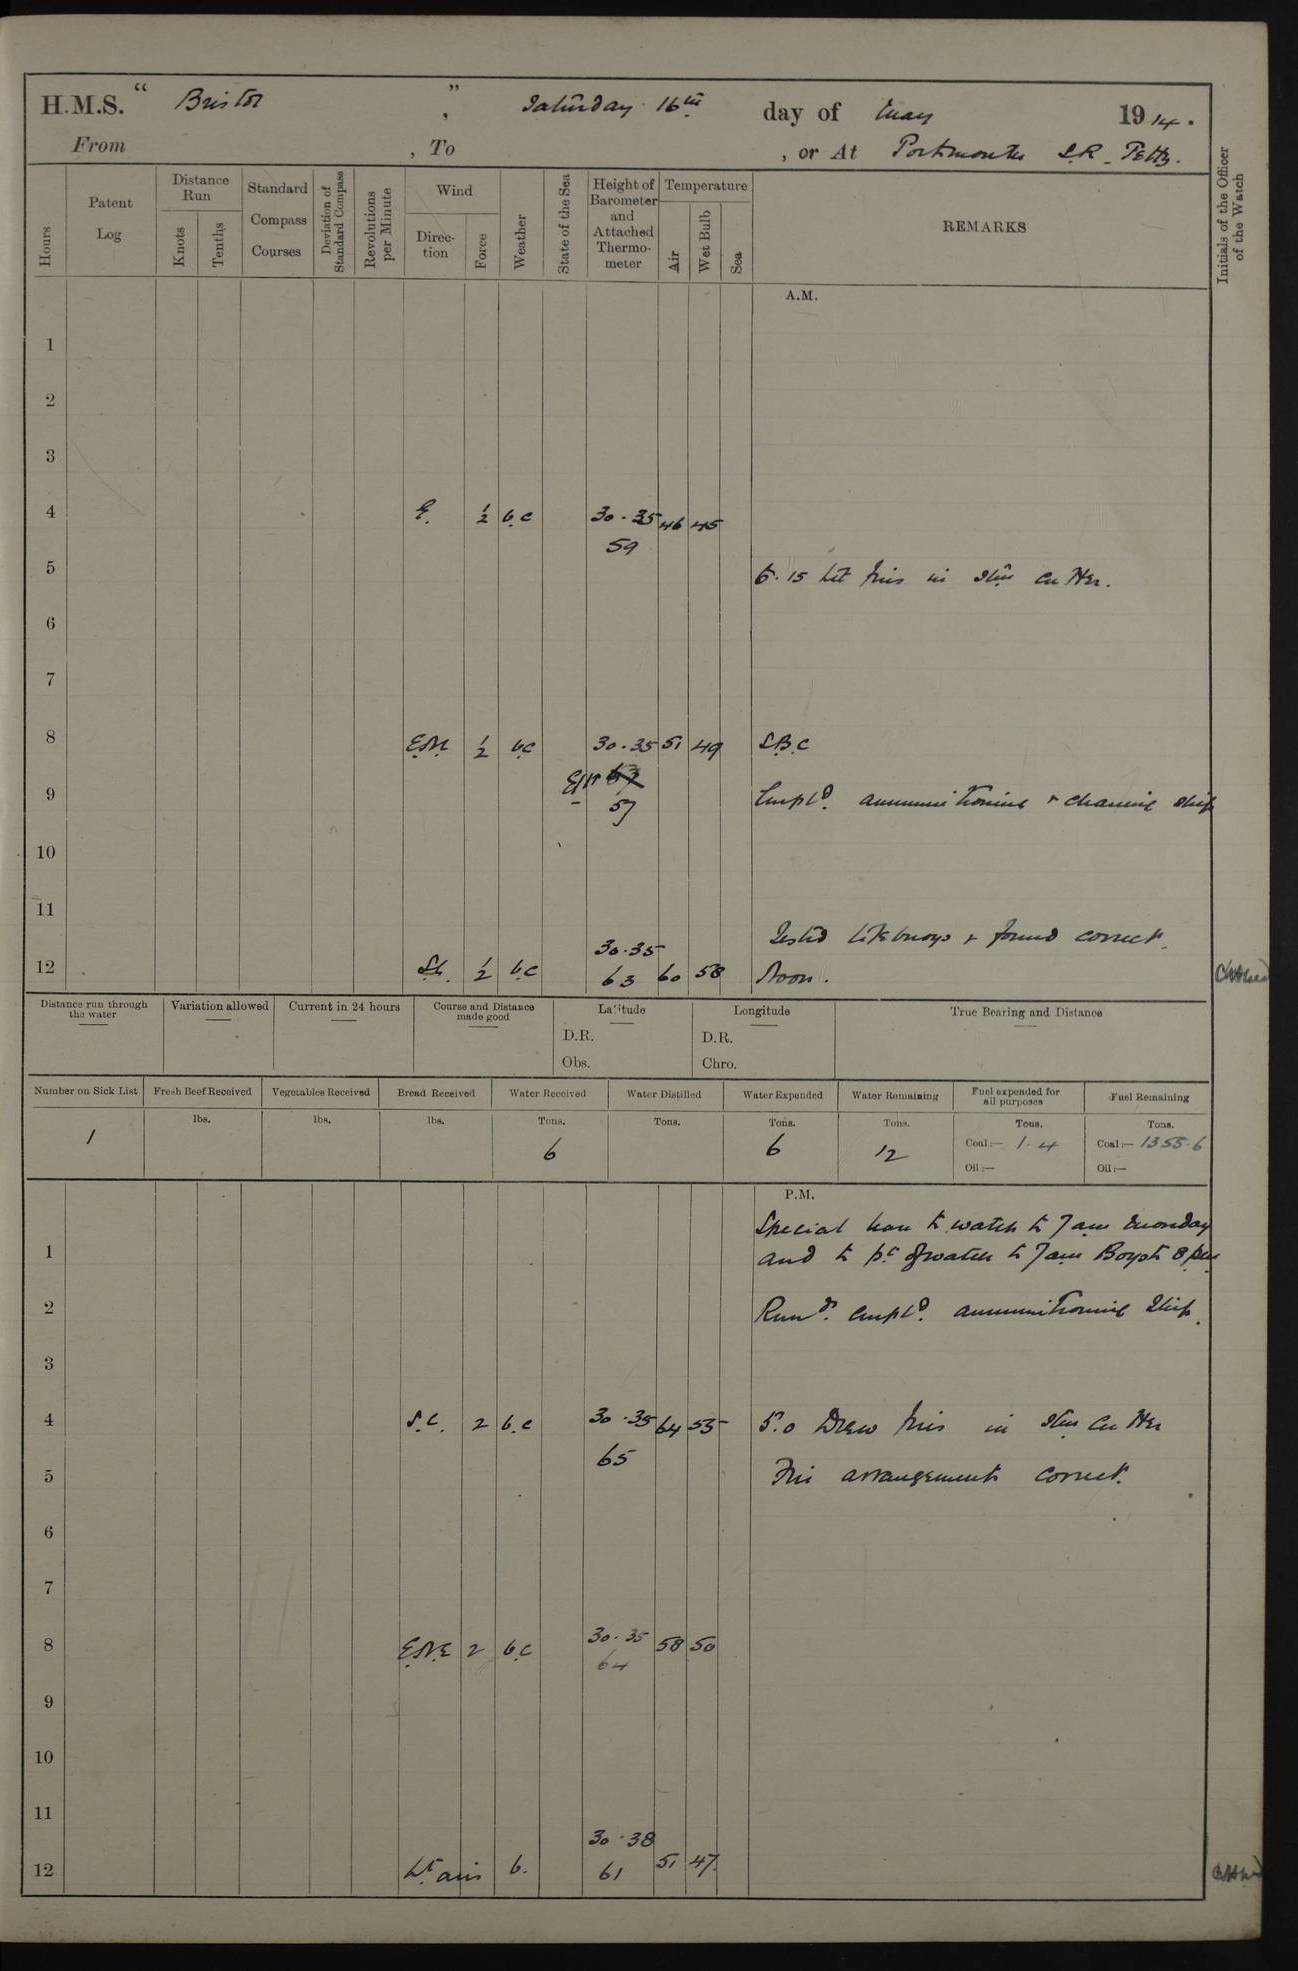 H.M.S. “ Bristol ” , Saturday 16th day of May 1914.
From , To , or At Portsmouth S.R. Jetty.
Hours
Patent Log
Distance Run
Knots
Tenths
Standard Compass Courses
Deviation of Standard Compass
Revolutions per Minute
Wind
Direction
Force
Weather
State of the Sea
Height of Barometer and Attached Thermometer
Temperature
Air
Wet Bulb
Sea
REMARKS
Initials of the Officer of the Watch
A.M.
1
2
3
4 E. ½ b.c 30.35 46 45
59
5 5.15 Lit fires in Stm cutter.
6
7
8 E.N.E. ½ b.c 30.35 51 49 S.B.C
57
9 Empld. ammunitioning & cleaning ship
10
11
Tested lifebuoys & found correct.
30.35
12 ½ b.c 63 60 58 Noon.
Distance run through the water
Variation allowed
Current in 24 hours
Course and Distance made good
Latitude
D.R.
Obs.
Longitude
D.R.
Chro.
True Bearing and Distance
Number on Sick List
Fresh Beef Received
Vegetables Received
Bread Received
Water Received
Water Distilled
Water Expended
Water Remaining
Fuel expended for all purposes
Fuel Remaining
lbs. lbs. lbs. Tons. Tons. Tons. Tons. Tons. Tons.
1 6 6 12 Coal:— 1.4 Coal:— 1355.6
Oil:— Oil:—
P.M.
Special leave to watch to 7am Monday
1 and to pt of watch to 7am Boys to 8pm
2 Rumdr. empld. ammunitioning Ship.
3
4 S.E. 2 b.c 30.35 64 55 5.0 Drew fires in Stm cutter
65
5 Fire arrangements correct.
6
7
8 E.N.E 2 b.c 30.35 58 50
64
9
10
11
30.38
12 Lt airs b. 61 51 47.